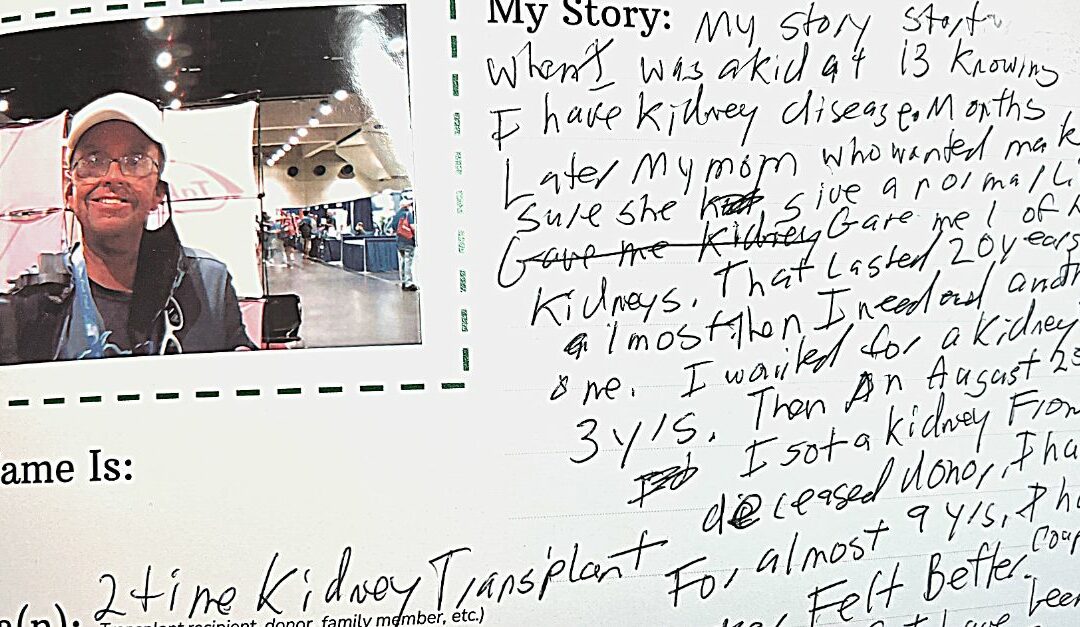 My Story: My story start
when I was a kid at 13 knowing
I have kidney disease. Months
Later My mom who wanted mak
sure she give a normal Li
Gave me kidney Gave me 1 of h
Kidneys. That Lasted 20 years
almost then I needed anoth
one. I waited for a kidney
3 yrs. Then on August 23
I got a kidney From
deceased donor, I ha
For almost 9 yrs, I ha
Felt Better. Coup
been
ame Is:
2 time Kidney Transplant
Transplant recipient, donor, family member, etc.)